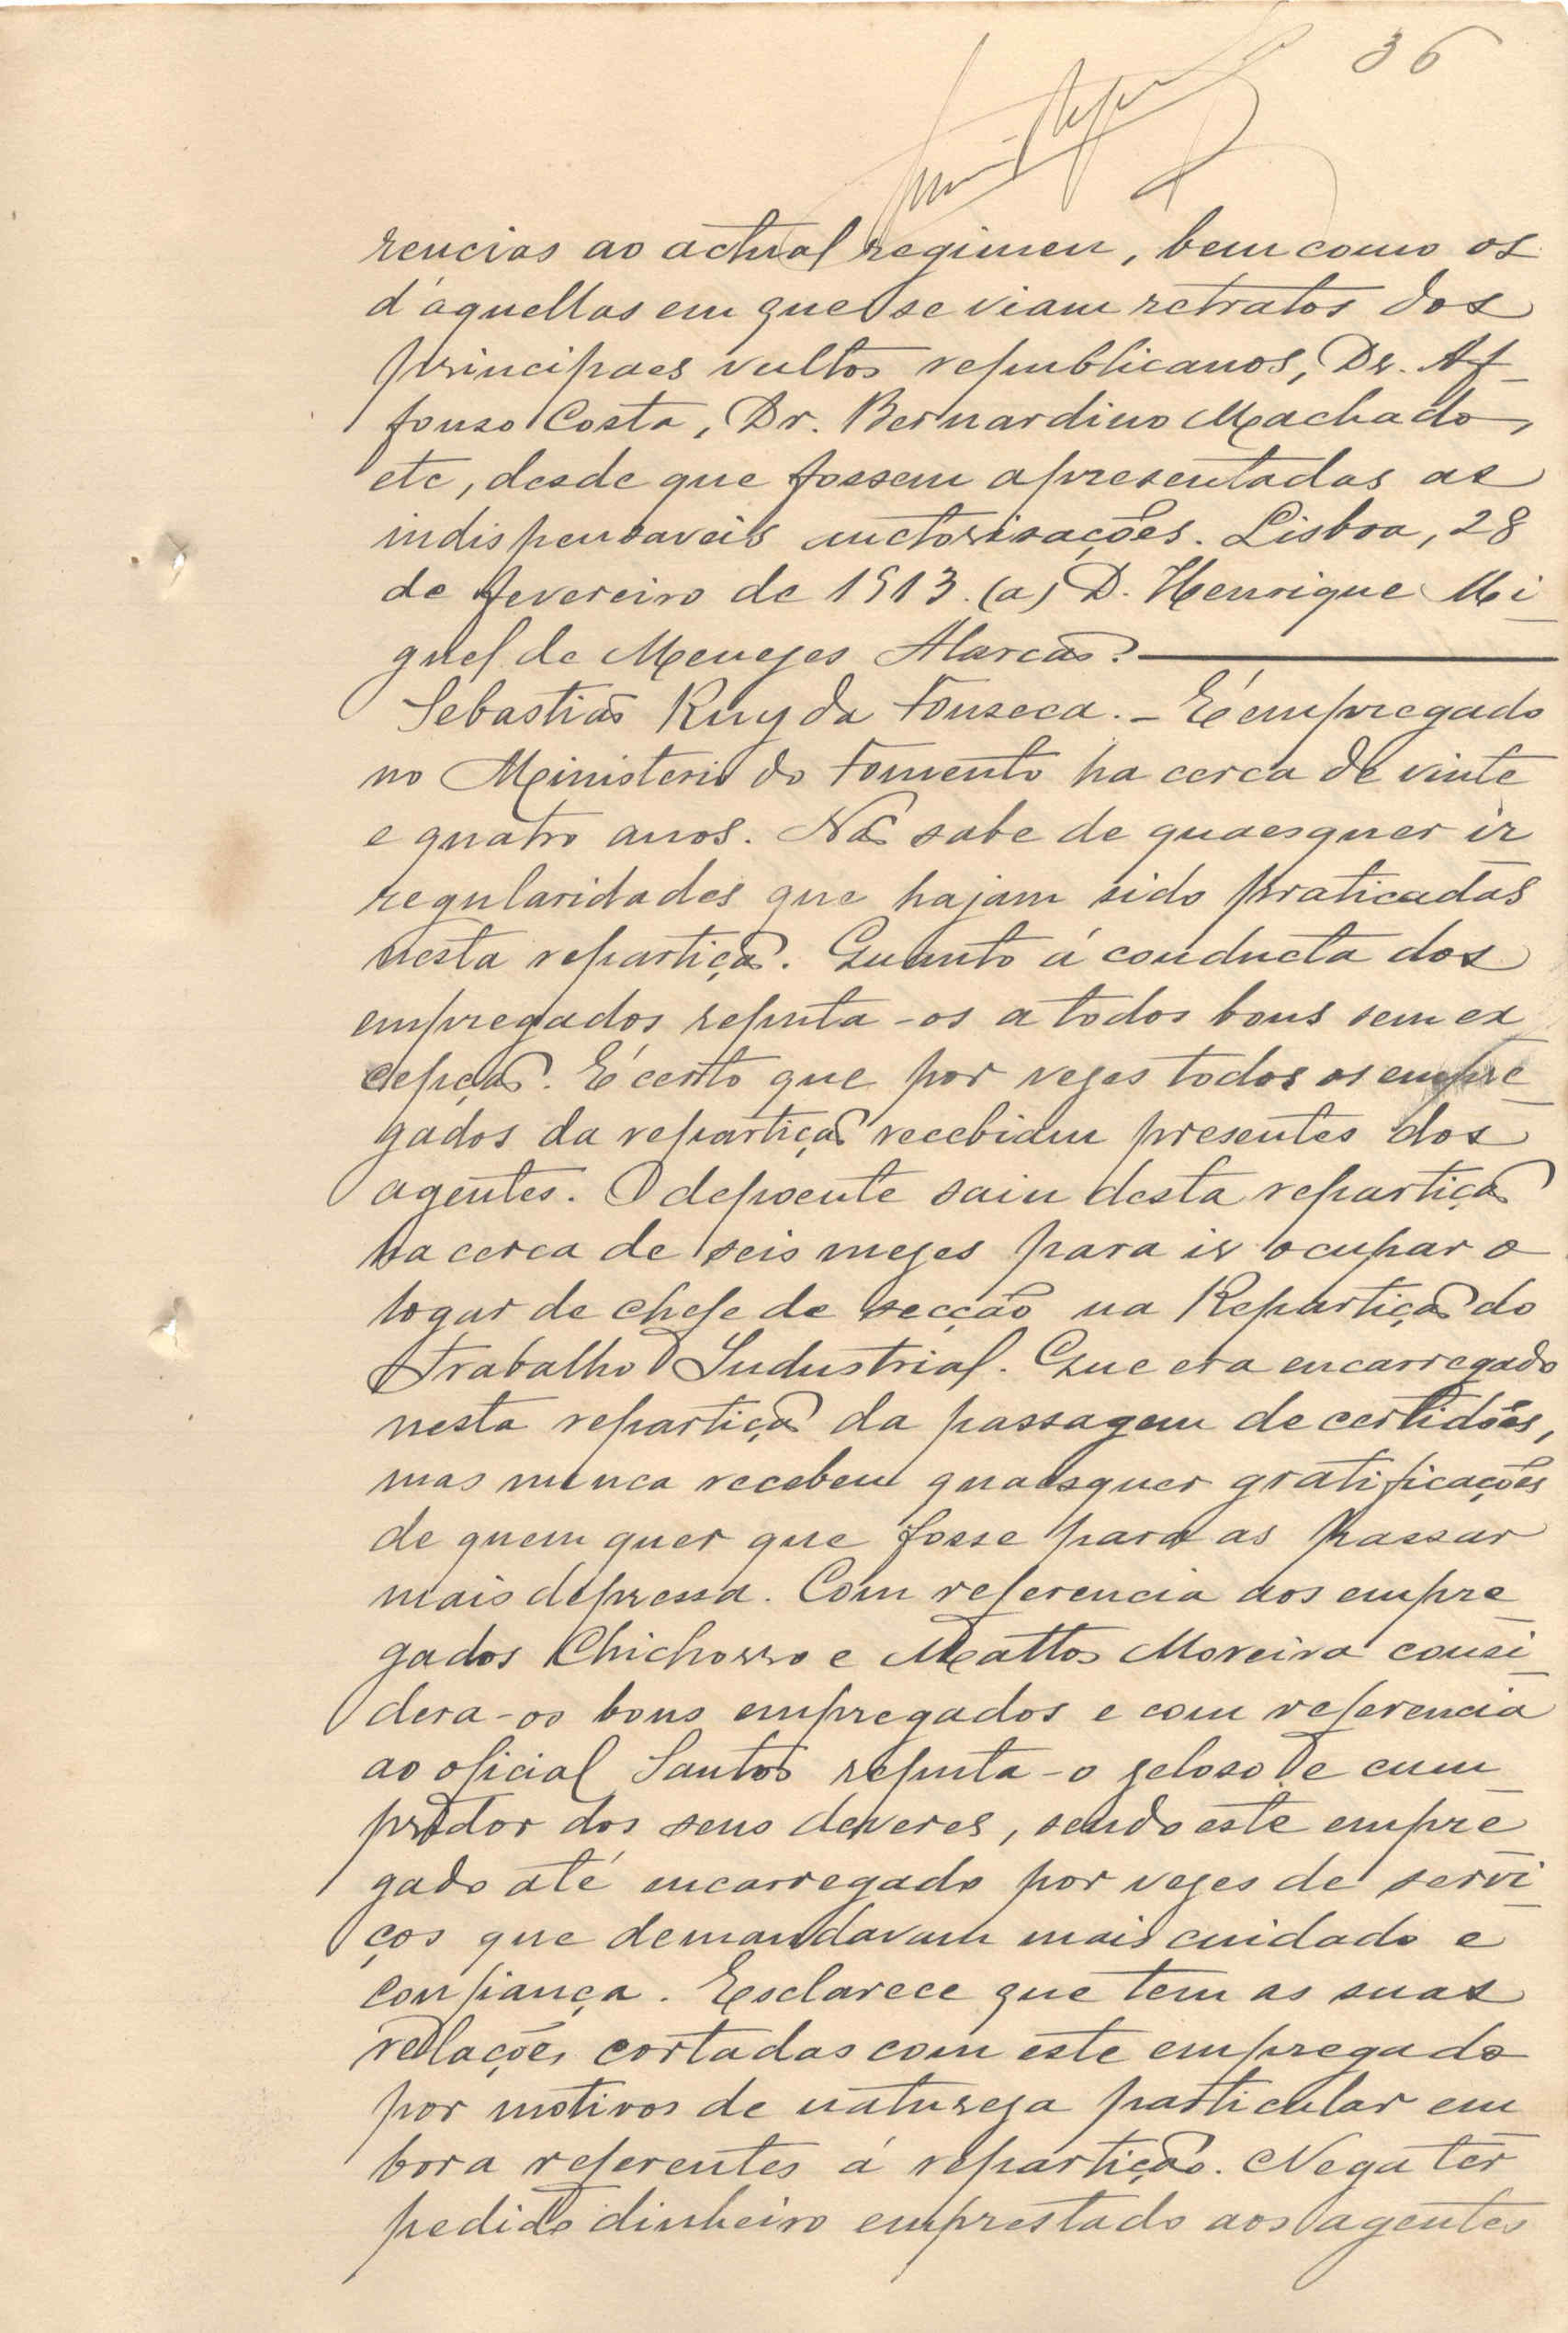 36
rencias ao actual regimen, bem como os
d'aquellas em que se viam retratos dos
principaes vultos republicanos, Dr. Af-
fonso Costa, Dr. Bernardino Machado,
etc, desde que fossem apresentadas as
indispensaveis auctorisações. Lisboa, 28
de fevereiro de 1913. (a) D. Henrique Mi-
guel de Menezes Alarcão.
Sebastião Ruy da Fonseca. - É empregado
no Ministerio do Fomento ha cerca de vinte
e quatro anos. Não sabe de quaesquer ir-
regularidades que hajam sido praticadas
nesta repartição. Quanto á conducta dos
empregados reputa-os a todos bons sem ex
cepção. É certo que por vezes todos os empre-
gados da repartição recebiam presentes dos
agentes. O depoente saiu desta repartição
ha cerca de seis mezes para ir ocupar o
logar de chefe de secção na Repartição do
Trabalho Industrial. Que era encarregado
nesta repartição da passagem de certidões,
mas nunca recebeu quaesquer gratificações
de quem quer que fosse para as passar
mais depressa. Com referencia aos empre-
gados Chichorro e Mattos Moreira consi-
dera-os bons empregados e com referencia
ao oficial Santos reputa-o zeloso e cum-
pridor dos seus deveres, sendo este empre-
gado até encarregado por vezes de servi-
ços que demandavam mais cuidado e
confiança. Esclarece que tem as suas
relações cortadas com este empregado
por motivos de natureza particular em-
bora referentes á repartição. Nega ter
pedido dinheiro emprestado aos agentes